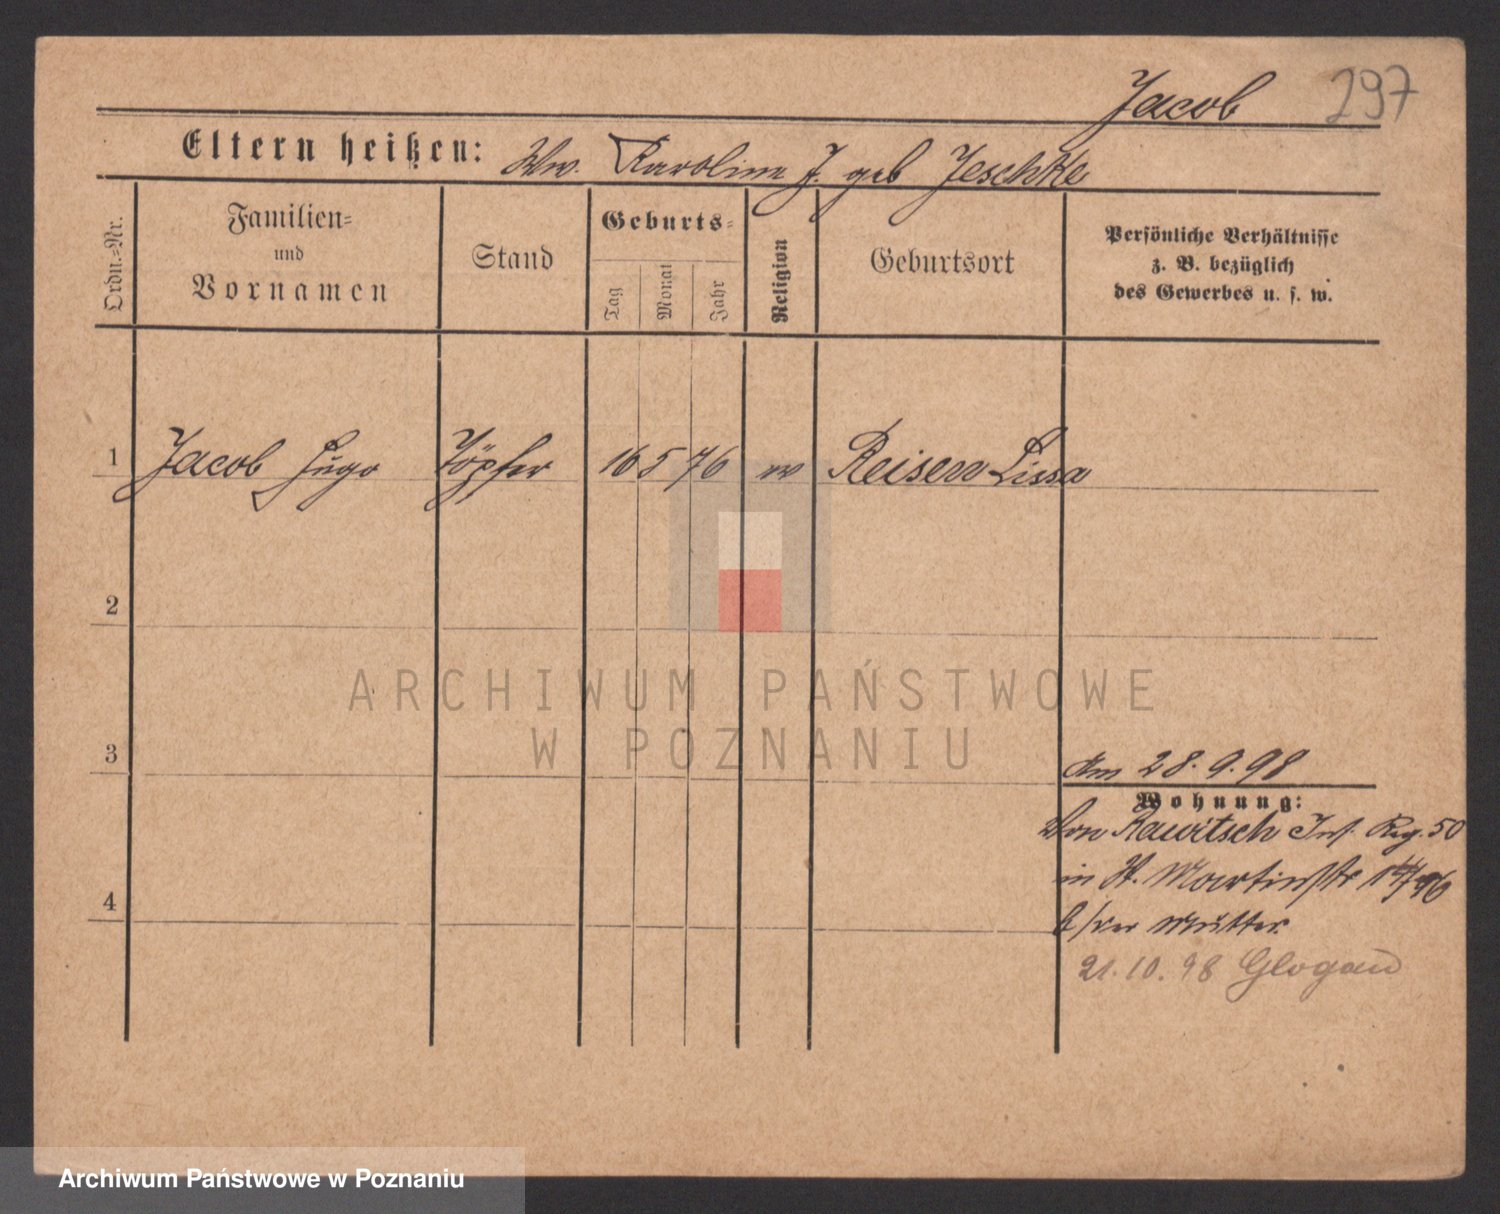 Jacob 297
Eltern heißen: Ww. Karoline J. geb Jeschke
Ordn.=Nr.
Familien=
und
Vornamen
Stand
Geburts=
Tag
Monat
Jahr
Religion
Geburtsort
Persönliche Verhältnisse
z. B. bezüglich
des Gewerbes u. s. w.
1 Jacob Hugo Töpfer 16 5 76 Reisen Lissa
2
ARCHIWUM PAŃSTWOWE
W POZNANIU
3
Am 28.9.98
Wohnung:
Von Rawitsch Inf. Reg. 50
in St. Martinstr
4
b/der Mutter
21.10.98 Glogau
Archiwum Państwowe w Poznaniu